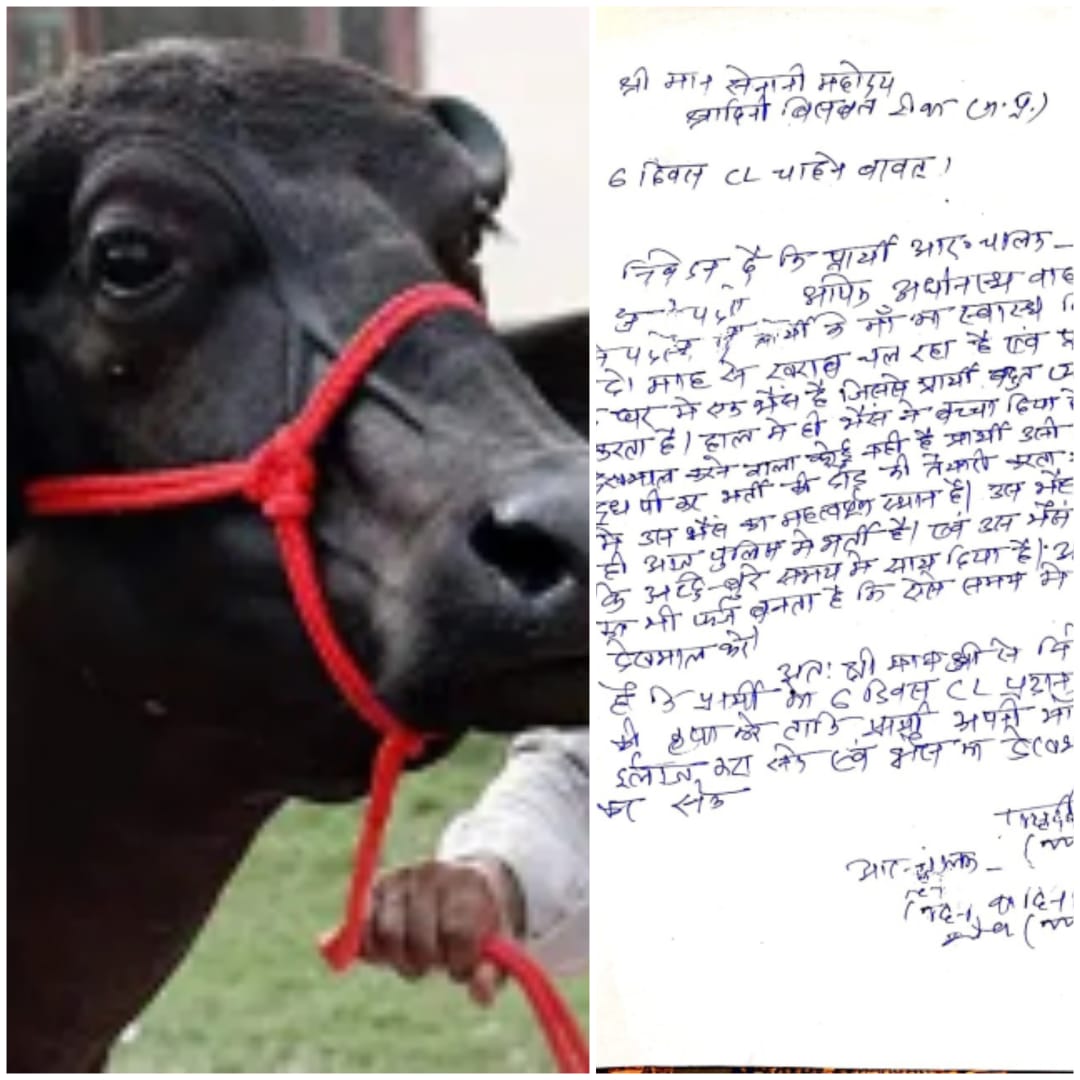 श्री मान सेनानी महोदय
वाहिनी विसबल रीवा (म.प्र.)
6 दिवस CL चाहने बावत्।
निवेदन है कि प्रार्थी आर॰चालक
अधीनस्थ
प्रार्थी के माँ का स्वास्थ्य
दो माह से खराब चल रहा है एवं
घर में एक भैंस है जिससे प्रार्थी बहुत
करता है। हाल में ही भैंस ने बच्चा दिया
देखभाल करने वाला कोई नही है प्रार्थी उसी
दूध पी कर भर्ती की दौड़ की तैयारी करता
में उस भैंस का महत्वपूर्ण स्थान है। उस भैंस
ही आज पुलिस मे भर्ती है। एवं उस भैंस
के अच्छे-बुरे समय मे साथ दिया है।
का भी फर्ज बनता है कि ऐसे समय मे
देखभाल करे।
अतः श्री मान जी से
है कि प्रार्थी को 6 दिवस CL प्रदान
की कृपा करे ताकि प्रार्थी अपनी माँ
ईलाज करा सके एवं भैंस का
कर सके
आर॰चालक